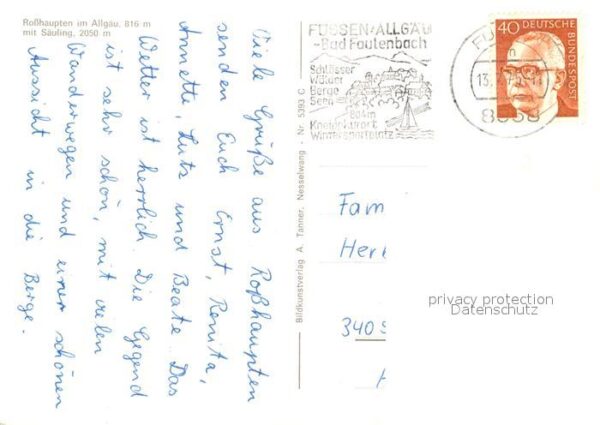 Roßhaupten im Allgäu, 816 m
mit Säuling, 2050 m
Viele Grüße aus Roßhaupten
senden Euch Ernst, Renita,
Annette, Lutz und Beate. Das
Wetter ist herrlich. Die Gegend
ist sehr schön, mit vielen
Wanderwegen und einer schönen
Aussicht in die Berge.
Bildkunstverlag A. Tanner, Nesselwang - Nr. 5393 C
FÜSSEN/ALLGÄU
-Bad Faulenbach
Schlösser
Wälder
Berge
Seen
804m
Kneippkurort
Wintersportplatz
40 DEUTSCHE
BUNDESPOST
8958
Fam
Her
340
privacy protection
Datenschutz